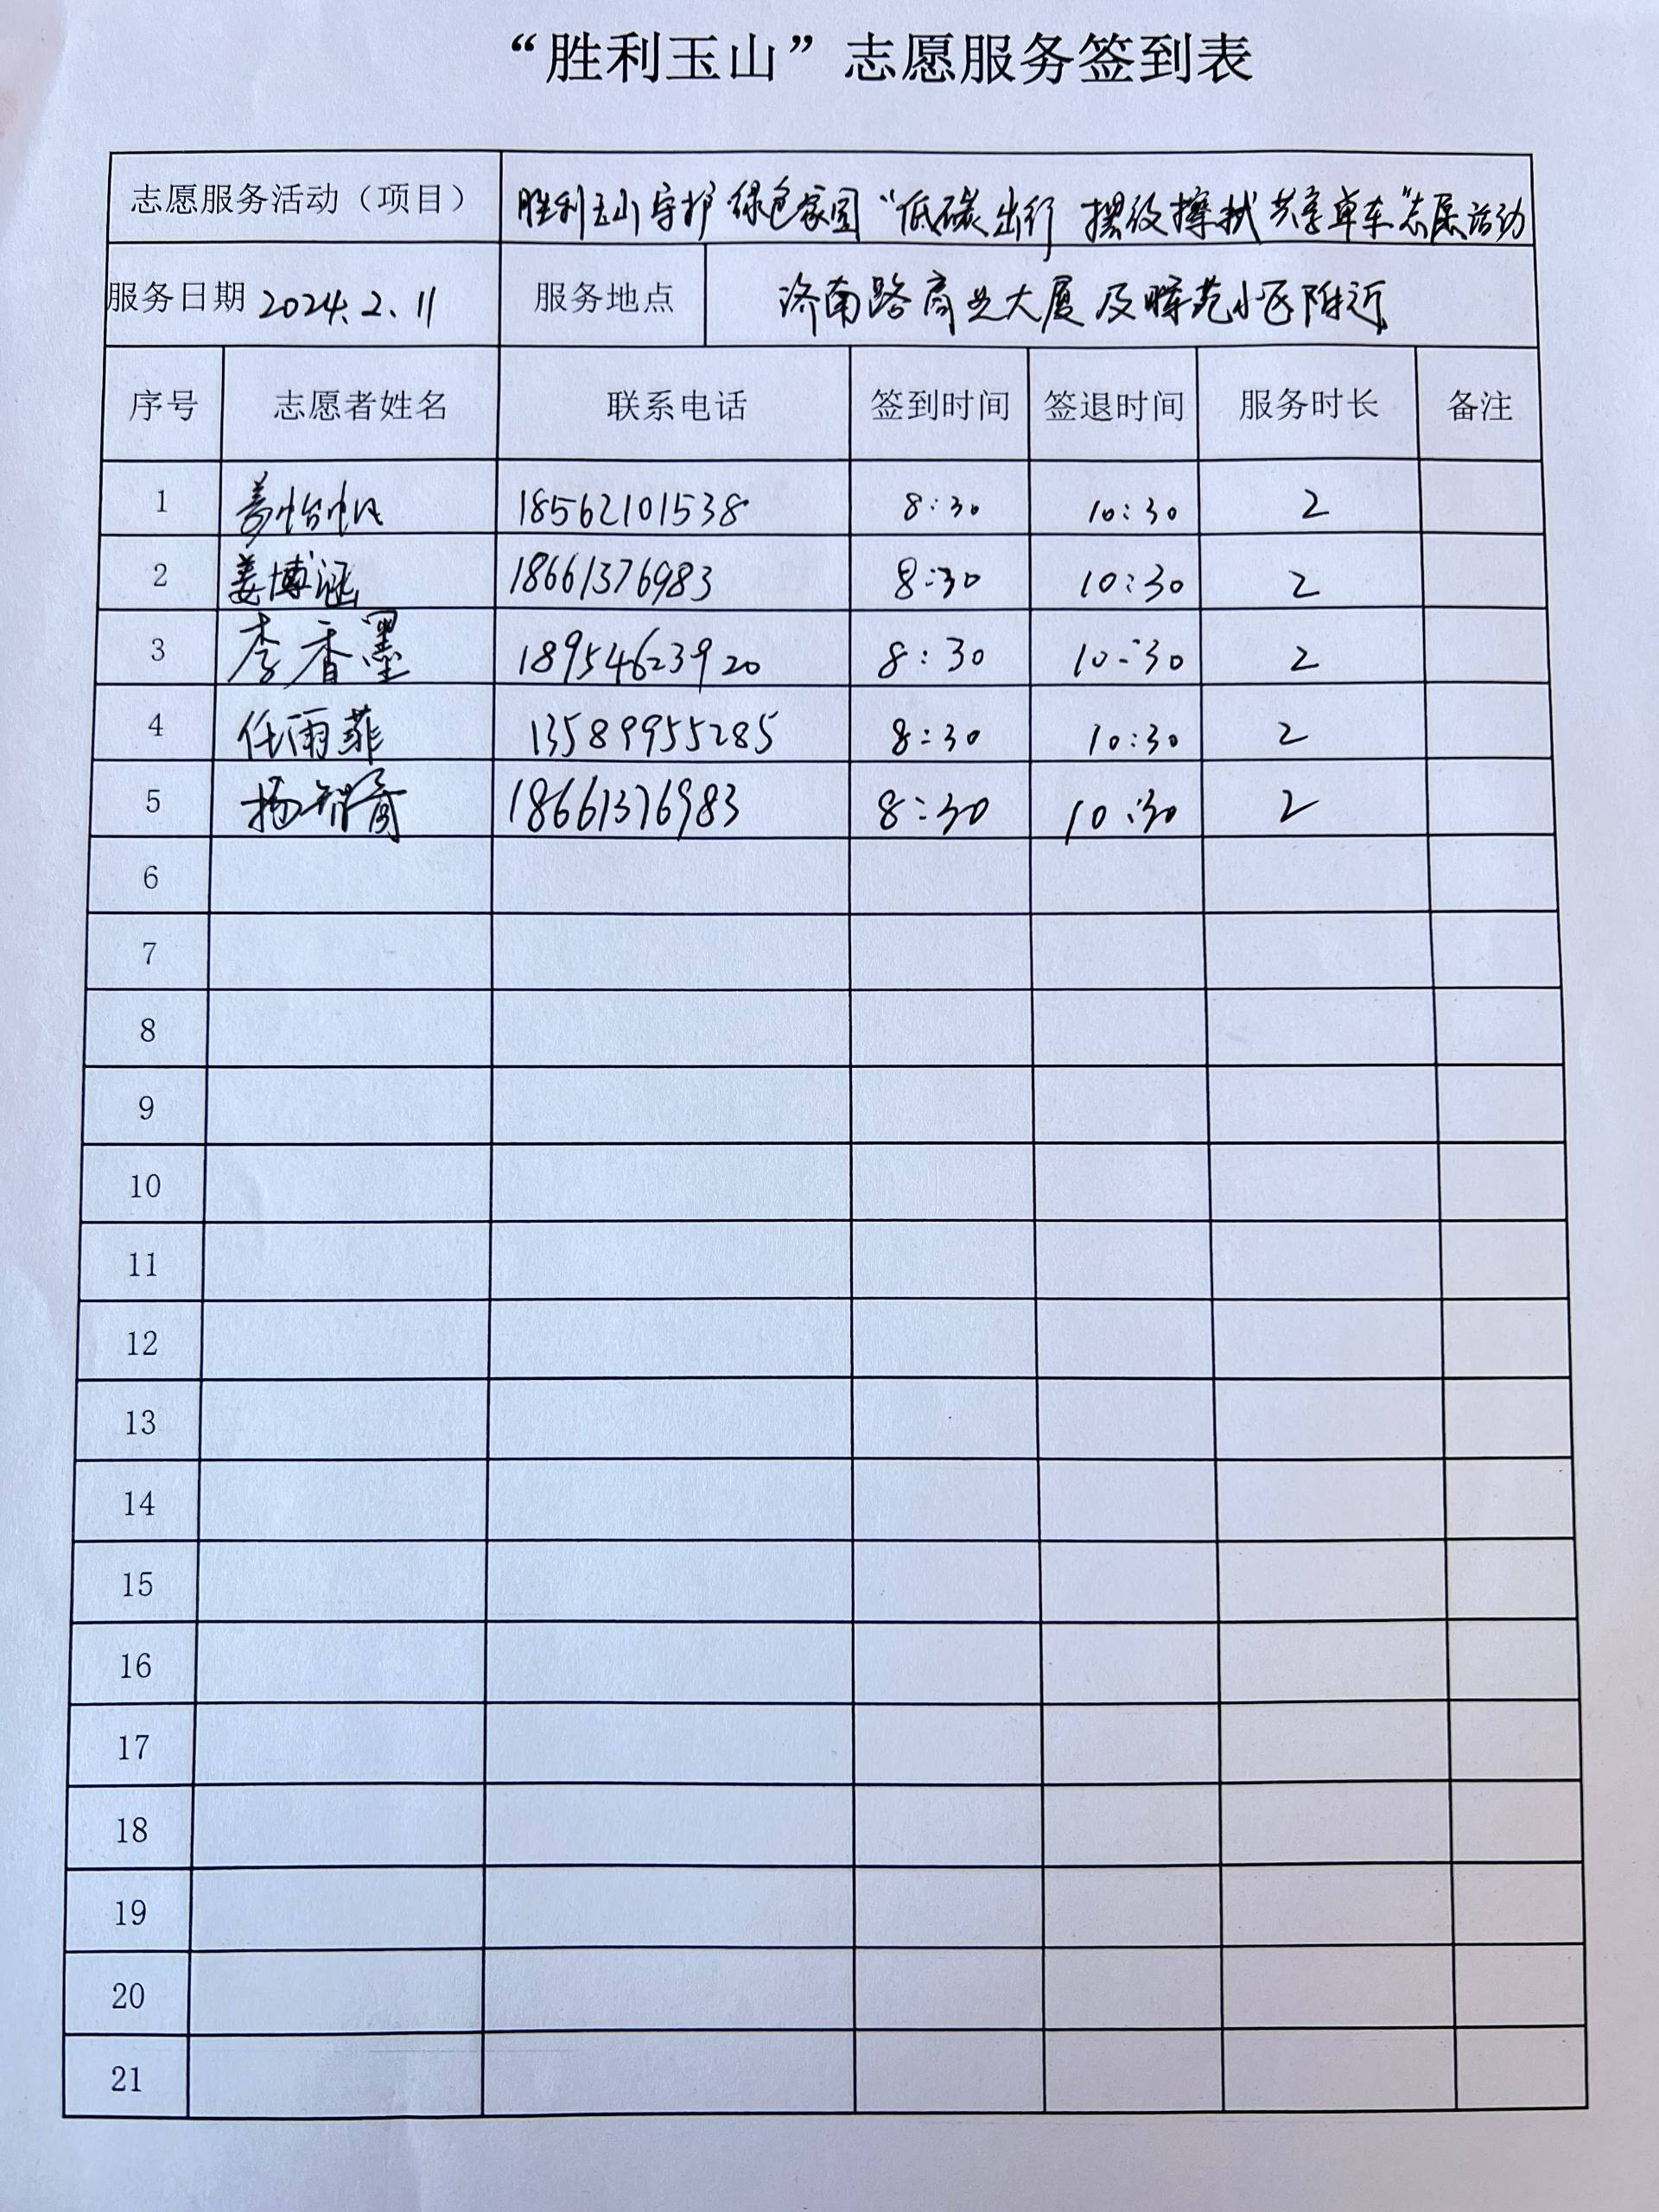 “胜利玉山”志愿服务签到表
志愿服务活动（项目） 胜利玉山守护绿色家园“低碳出行 摆放擦拭共享单车”志愿活动
服务日期 2024.2.11 服务地点 济南路商业大厦及晖苑小区附近
序号 志愿者姓名 联系电话 签到时间 签退时间 服务时长 备注
1 姜怡帆 18562101538 8:30 10:30 2
2 姜博涵 18661376983 8:30 10:30 2
3 李香墨 18954623920 8:30 10:30 2
4 任雨菲 13589955285 8:30 10:30 2
5 杨智 18661376983 8:30 10:30 2
6
7
8
9
10
11
12
13
14
15
16
17
18
19
20
21